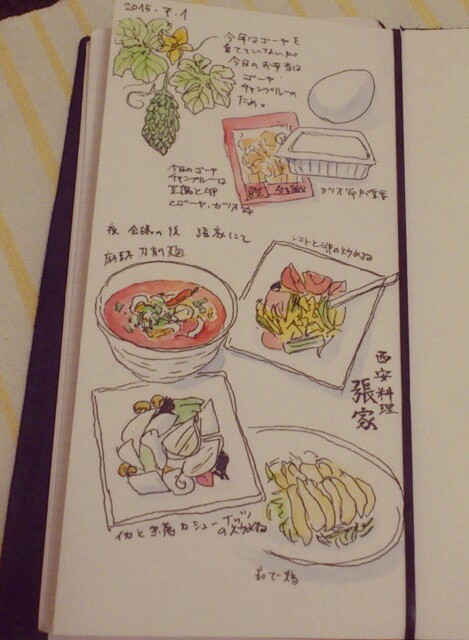 2015.7.1
今年はゴーヤを
育てていないが
今日のお弁当は
ゴーヤ
チャンプルーの
ため。
今日のゴーヤ
チャンプルーは
豆腐と卵
とゴーヤ、カツオ
夜 会議の後 張家にて
麻辣刀削麺
トマトと卵の炒めもの
西安料理
張家
イカと カシューナッツ
の炒めもの
茹で鶏